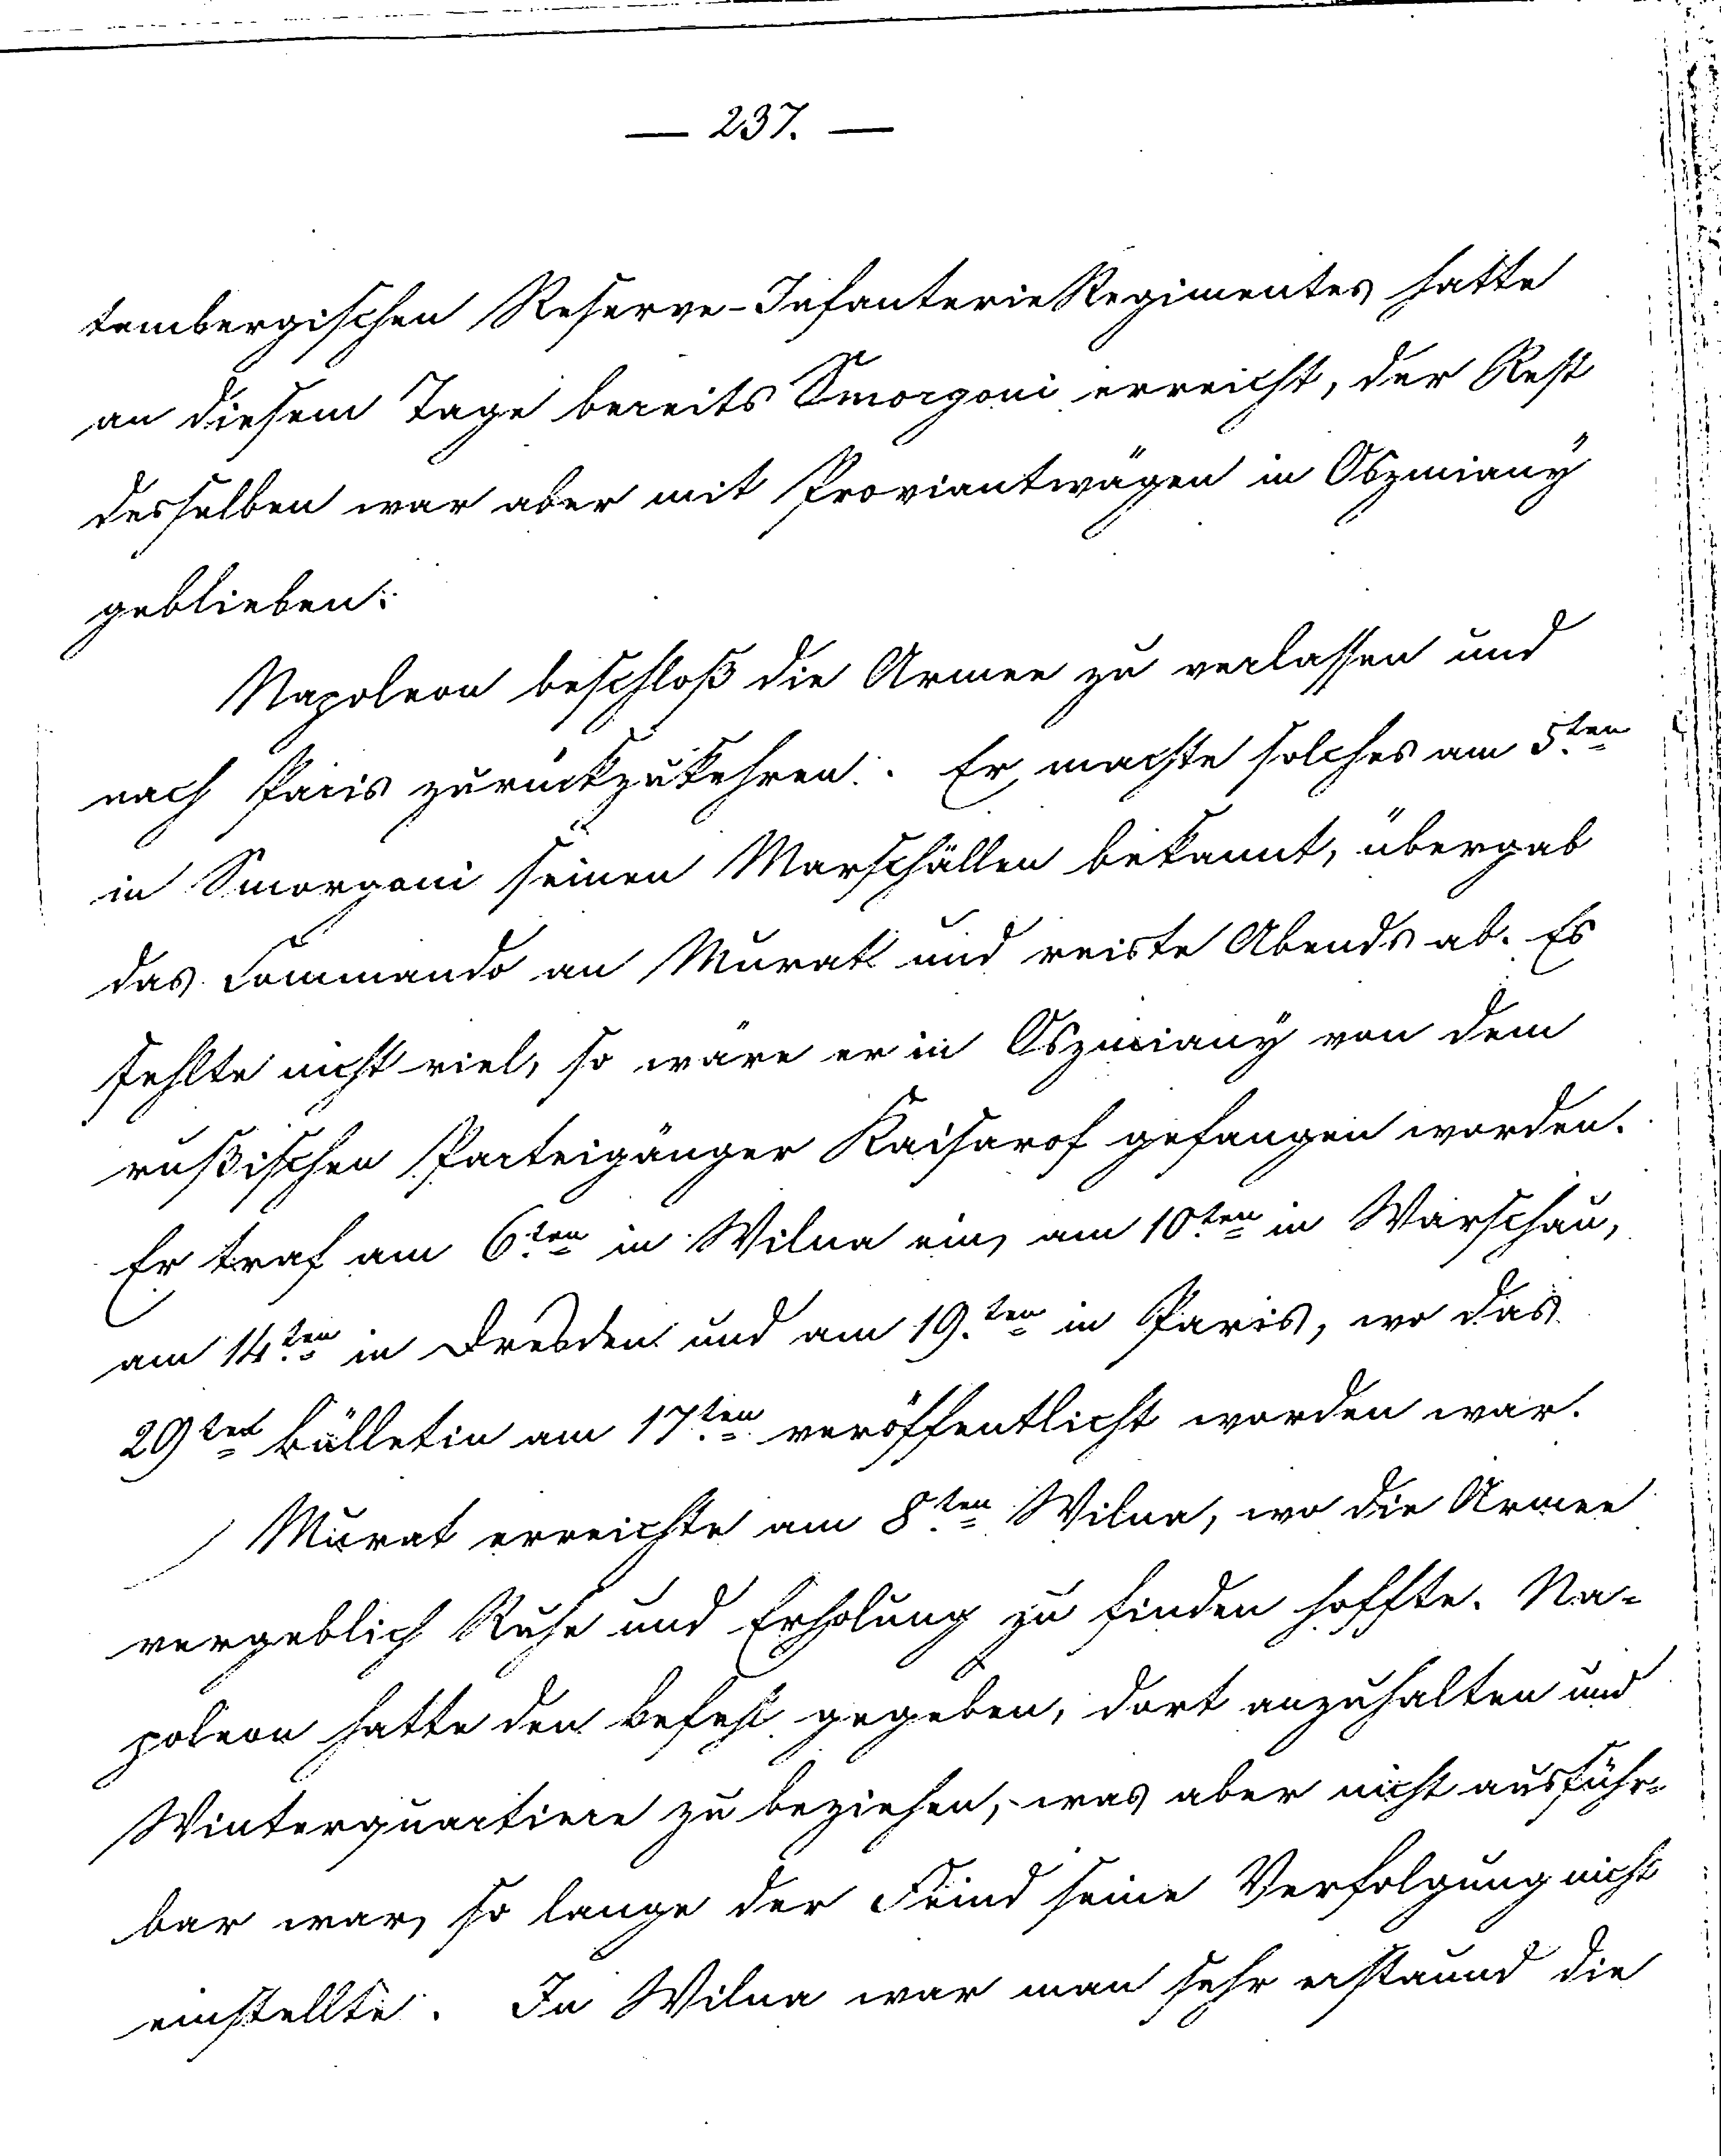 — 237. —
tembergischen Reserve-Infanterie Regimentes hatte
an diesem Tage bereits Smorgoni erreicht, der Rest
desselben war aber mit Proviantwägen in Oszmiany
geblieben.
Napoleon beschloß die Armee zu verlassen und
nach Paris zurückzukehren. Er machte solches am 5.ten
in Smorgoni seinen Marschällen bekannt, übergab
das Commando an Murat und reiste Abends ab. Es
fehlte nicht viel, so wäre er in Oszmiany von dem
rußischen Parteigänger Kaisarof gefangen worden.
Er traf am 6.ten in Wilna ein, am 10.ten in Warschau,
am 14.ten in Dresden und am 19.ten in Paris, wo das
29te Bülletin am 17.ten veröffentlicht worden war.
Murat erreichte am 8.ten Wilna, wo die Armee
vergeblich Ruhe und Erholung zu finden hoffte. Na-
poleon hatte den Befehl gegeben, dort anzuhalten und
Winterquartiere zu beziehen, was aber nicht ausführ-
bar war, so lange der Feind seine Verfolgung nicht
einstellte. In Wilna war man sehr erstaund die